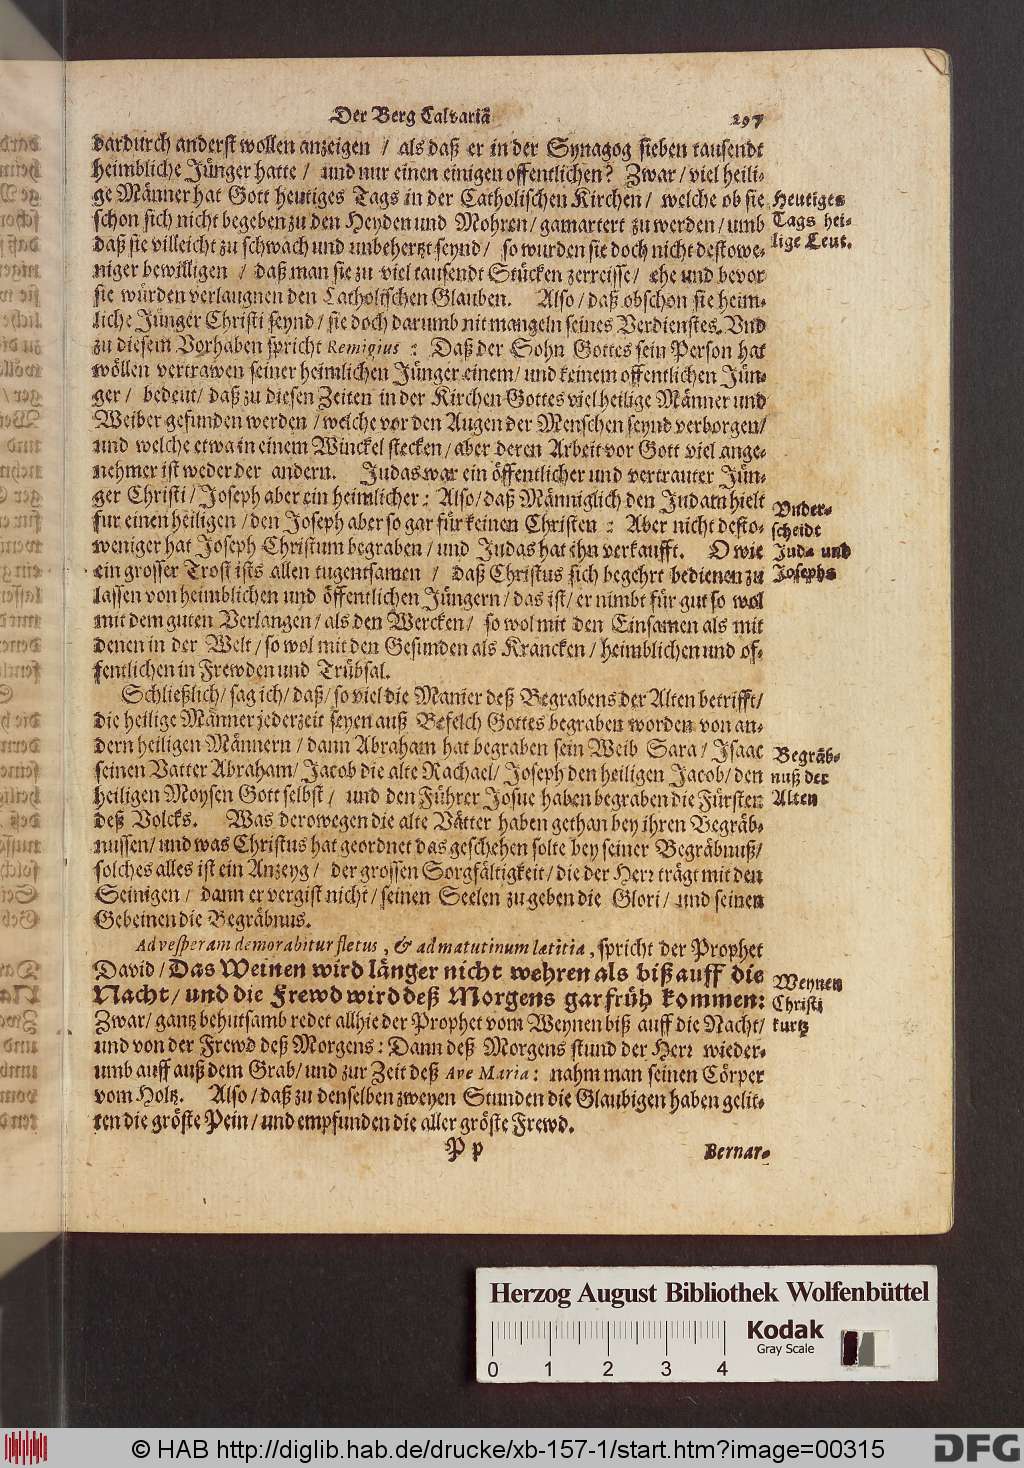 Der Berg Calvariæ
297
dardurch anderst wollen anzeigen / als daß er in der Synagog sieben tausendt
heimbliche Jünger hatte / und nur einen einigen offentlichen? Zwar / viel heili-
ge Männer hat Gott heutiges Tags in der Catholischen Kirchen / welche ob sie
schon sich nicht begeben zu den Heyden und Mohren / gamartert zu werden / umb
daß sie villeicht zu schwach und unbehertzt seynd / so wurden sie doch nicht destowe-
niger bewilligen / daß man sie zu viel tausendt Stücken zerreisse / ehe und bevor
sie würden verlaugnen den Catholischen Glauben. Also / daß obschon sie heim-
liche Jünger Christi seynd / sie doch darumb nit mangeln seines Verdienstes. Und
zu diesem Vorhaben spricht Remigius : Daß der Sohn Gottes sein Person hat
wöllen vertrawen seiner heimlichen Jünger einem / und keinem offentlichen Jün-
ger / bedeut / daß zu diesen Zeiten in der Kirchen Gottes viel heilige Männer und
Weiber gefunden werden / welche vor den Augen der Menschen seynd verborgen /
und welche etwa in einem Winckel stecken / aber deren Arbeit vor Gott viel ange-
nehmer ist weder der andern. Judas war ein öffentlicher und vertrauter Jün-
ger Christi / Joseph aber ein heimlicher : Also / daß Männiglich den Judam hielt
für einen heiligen / den Joseph aber so gar für keinen Christen : Aber nicht desto-
weniger hat Joseph Christum begraben / und Judas hat ihn verkaufft. O wie
ein grosser Trost ists allen tugentsamen / daß Christus sich begehrt bedienen zu
lassen von heimblichen und öffentlichen Jüngern / das ist / er nimbt für gut so wol
mit dem guten Verlangen / als den Wercken / so wol mit den Einsamen als mit
denen in der Welt / so wol mit den Gesunden als Krancken / heimblichen und of-
fentlichen in Frewden und Trübsal.
Schließlich / sag ich / daß / so viel die Manier deß Begrabens der Alten betrifft /
die heilige Männer jederzeit seyen auß Befelch Gottes begraben worden von an-
dern heiligen Männern / dann Abraham hat begraben sein Weib Sara / Isaac
seinen Vatter Abraham / Jacob die alte Rachael / Joseph den heiligen Jacob / den
heiligen Moysen Gott selbst / und den Führer Josue haben begraben die Fürsten
deß Volcks. Was derowegen die alte Vätter haben gethan bey ihren Begräb-
nussen / und was Christus hat geordnet das geschehen solte bey seiner Begräbnuß /
solches alles ist ein Anzeyg / der grossen Sorgfältigkeit / die der Herr trägt mit den
Seinigen / dann er vergist nicht / seinen Seelen zu geben die Glori / und seinen
Gebeinen die Begräbnus.
Ad vesperam demorabitur fletus, & ad matutinum lætitia, spricht der Prophet
David / Das Weinen wird länger nicht wehren als biß auff die
Nacht / und die Frewd wird deß Morgens gar früh kommen:
Zwar / gantz behutsamb redet allhie der Prophet vom Weynen biß auff die Nacht /
und von der Frewd deß Morgens : Dann deß Morgens stund der Herr wieder-
umb auff auß dem Grab / und zur Zeit deß Ave Maria : nahm man seinen Cörper
vom Holtz. Also / daß zu denselben zweyen Stunden die Glaubigen haben gelit-
ten die gröste Pein / und empfunden die aller gröste Frewd.
P p
Bernar-
Heutiges
Tags hei-
lige Leut.
Under-
scheidt
Judæ und
Josephs
Begräb-
nuß der
Alten
Weynen
Christi
kurtz
Herzog August Bibliothek Wolfenbüttel
Kodak
Gray Scale
0 1 2 3 4
© HAB http://diglib.hab.de/drucke/xb-157-1/start.htm?image=00315
DFG